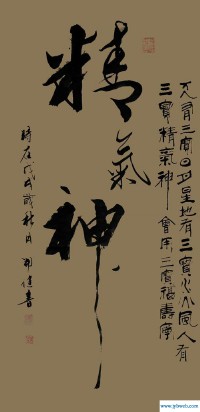 天有三寶日月星地有三寶水火風人有
三寶精氣神會用三寶壽康
精氣神
時在戊戌歲秋月書